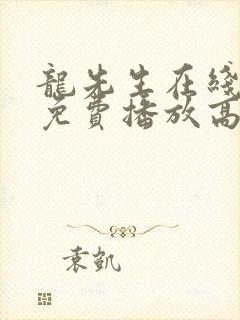 龍先生在綫
免費播放高
袁凱